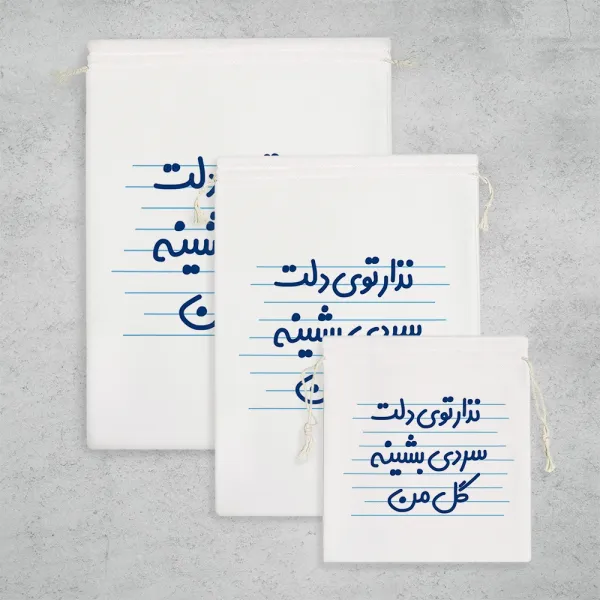 نذار توی دلت
سردی بشینه
نذار توی دلت
سردی بشینه
گل من